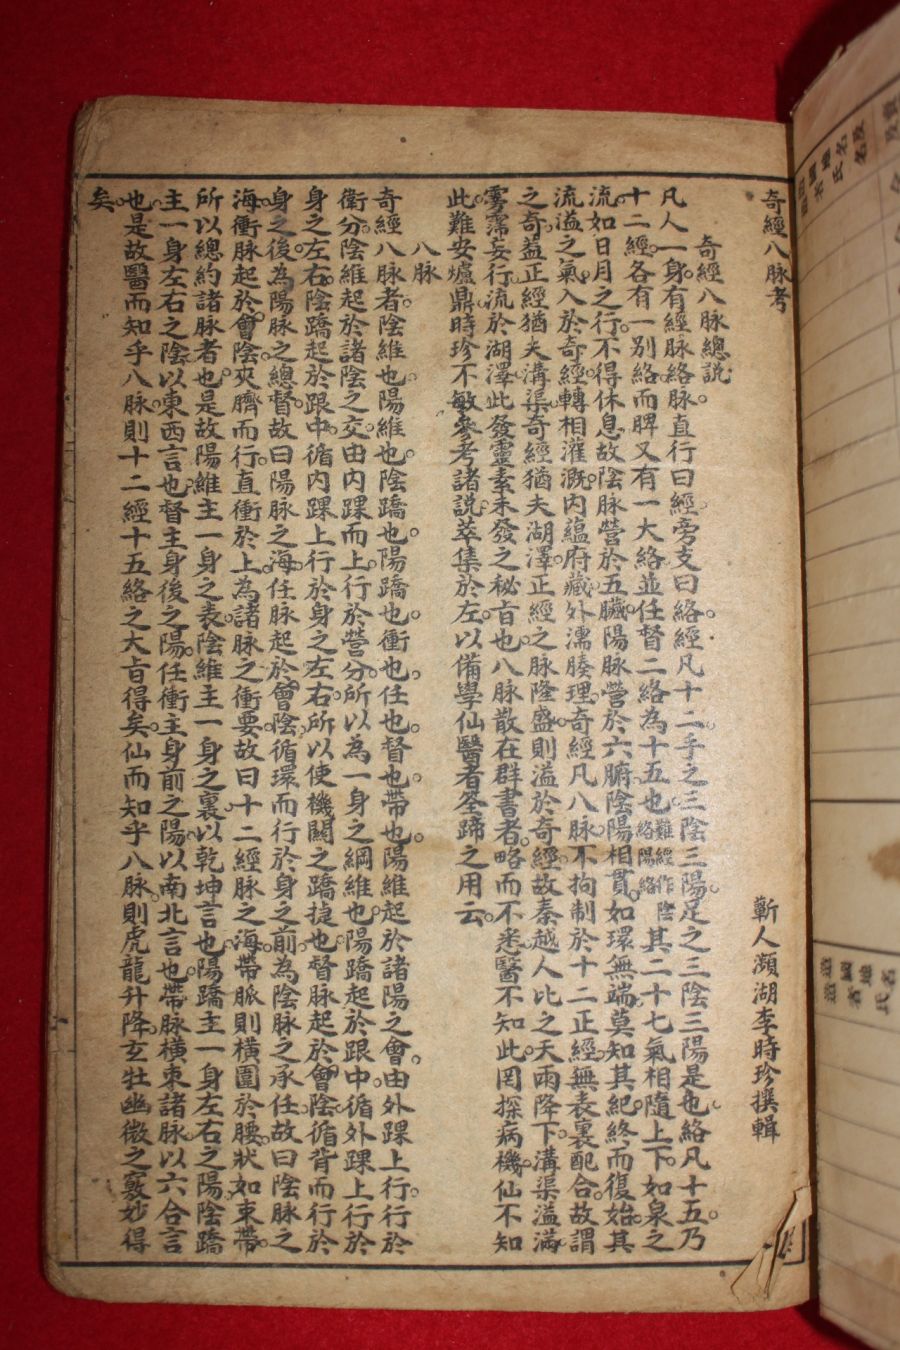 奇經八脉考
蘄人瀕湖李時珍撰輯
奇經八脉總說。
凡人一身有經脉絡脉直行曰經旁支曰絡。經凡十二手之三陰三陽。足之三陰三陽是也。絡凡十五。乃
十二經各有一別絡而脾又有一大絡並任督二絡為十五也。難經作陰絡陽絡其二十七氣相隨上下。如泉之
流。如日月之行。不得休息故陰脉營於五臟陽脉營於六腑陰陽相貫。如環無端莫知其紀終而復始。其
流溢之氣入於奇經轉相灌溉。內蘊府藏外濡腠理。奇經凡八脉。不拘制於十二正經。無表裏配合。故謂
之奇。蓋正經猶夫溝渠奇經猶夫湖澤。正經之脉隆盛。則溢於奇經。故秦越人比之天雨降下。溝渠溢滿
霶霈妄行流於湖澤此發靈素未發之秘旨也。八脉散在群書者略而不悉醫不知此罔探病機仙不知
此難安爐鼎時珍不敏參考諸說。萃集於左。以備學仙醫者筌蹄之用云。
八脉
奇經八脉者。陰維也。陽維也。陰蹻也。陽蹻也。衝也。任也。督也。帶也。陽維起於諸陽之會。由外踝上行於
衛分。陰維起於諸陰之交。由內踝而上行於營分。所以為一身之綱維也。陽蹻起於跟中。循外踝上行於
身之左右。陰蹻起於跟中循內踝上行於身之左右。所以使機關之蹻捷也。督脉起於會陰。循背而行於
身之後。為陽脉之總督。故曰陽脉之海。任脉起於會陰。循環而行於身之前為陰脉之承任。故曰陰脉之
海。衝脉起於會陰。夾臍而行。直衝於上。為諸脉之衝要。故曰十二經脉之海。帶脈則橫圍於腰。狀如束帶。
所以總約諸脉者也。是故陽維主一身之表。陰維主一身之裏。以乾坤言也。陽蹻主一身左右之陽。陰蹻
主一身左右之陰。以東西言也。督主身後之陽。任衝主身前之陽。以南北言也。帶脉橫束諸脉。以六合言
也。是故醫而知乎八脉。則十二經十五絡之大旨得矣。仙而知乎八脉。則虎龍升降。玄牝幽微之竅妙得
矣。